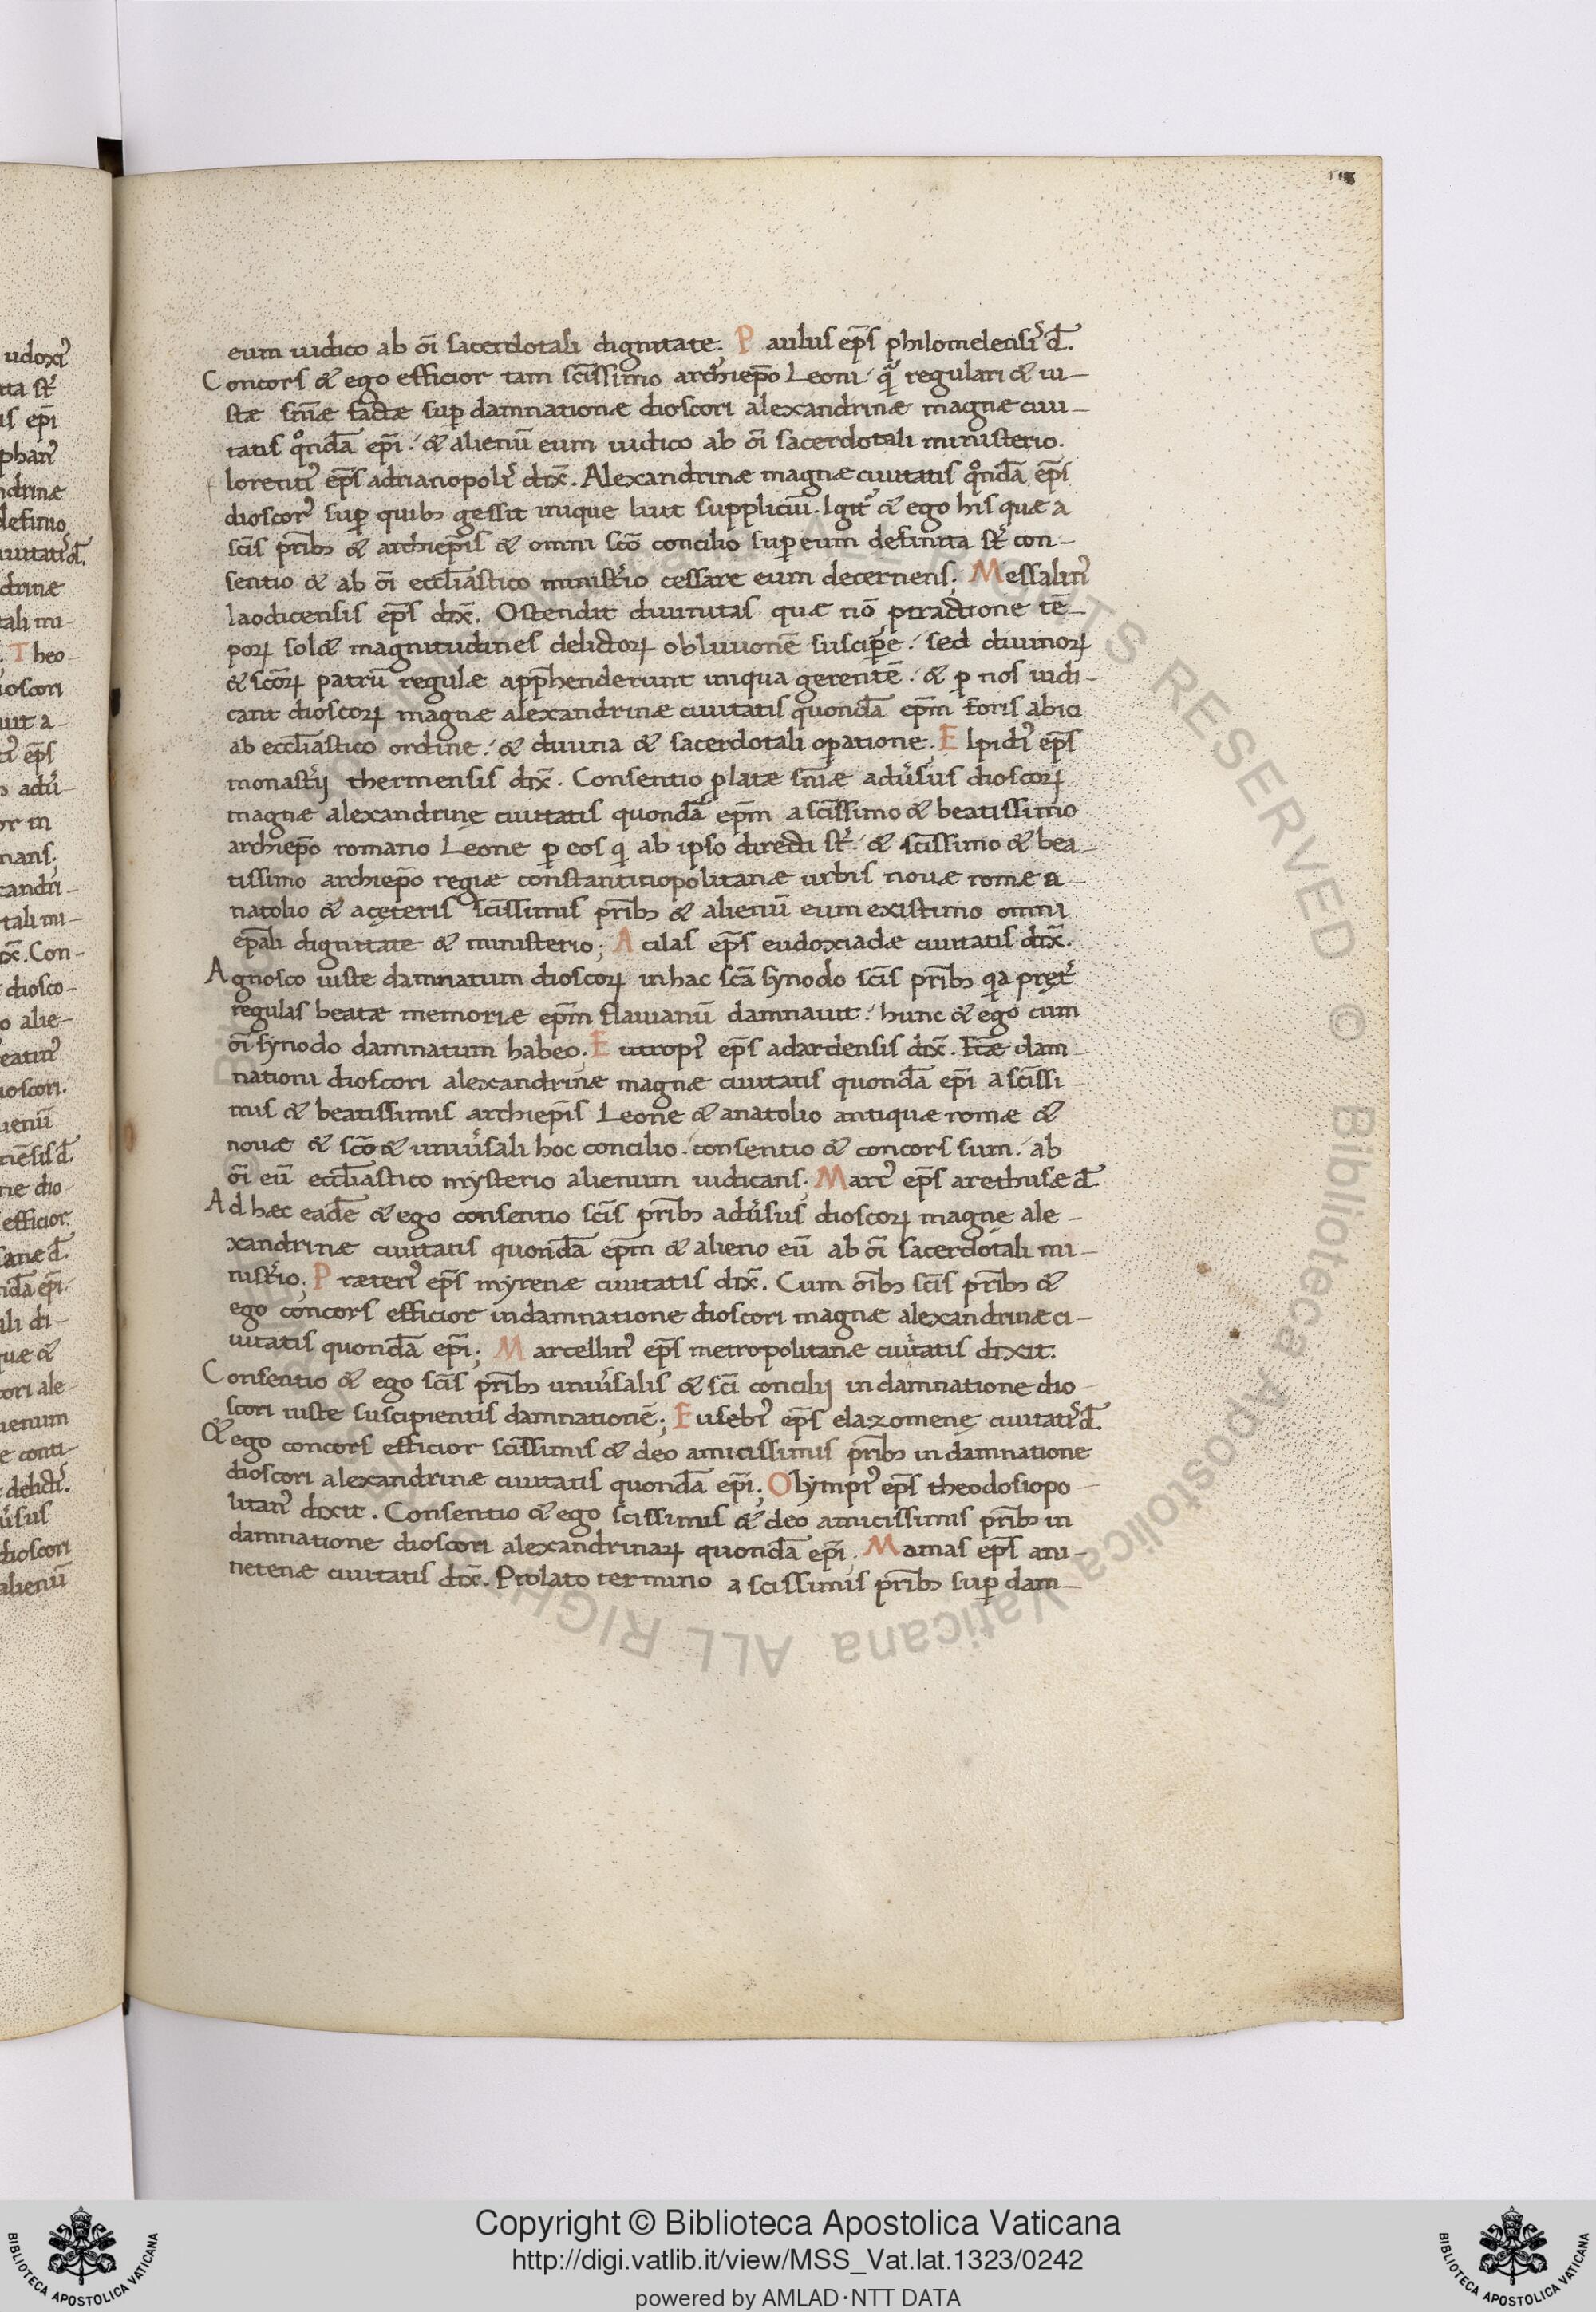 eum iudico ab oi̅ sacerdotali dignitate; Paulus ep̅s philomelensiꝰ d̅.
Concors & ego efficior tam sc̅issimo archiep̅o Leoni / quã regulari & iu-
stæ sn̅iæ factæ sup̱ damnationæ dioscori alexandrinæ magnæ ciui-
tatis qͦnda̅ ep̅i / & alienu̅ eum iudico ab oi̅ sacerdotali ministerio.
lorentiꝰ ep̅s adrianopoliꝰ dix̅. Alexandrinæ magnæ ciuitatis qͦnda̅ ep̅s
dioscorꝰ sup̱ quibꝫ gessit inique luit suppliciu̅. Igit᷑ & ego his quæ a
sc̅is pr̅ibꝫ & archiep̅is & omni sc̅o concilio sup̱ eum definita st̅ con-
sentio & ab oi̅ eccl̅iastico minist̅io cessare eum decernens. Messalinꝰ
laodicensis ep̅s dix̅. Ostendit diuinitas quæ no̅ ꝓtractione te̅-
poꝝ sol& magnitudines delictoꝝ obliuione̅ suscip̱e / sed diuinoꝝ
& sc̅oꝝ patru̅ regulæ appr̅henderunt iniqua gerente̅ / & p̱ nos iudi-
cant dioscoꝝ magnæ alexandrinæ ciuitatis quonda̅ ep̅m foris abici
ab eccl̅iastico ordine / & diuina & sacerdotali op̱atione. Elpidiꝰ ep̅s
monast̅ij thermensis dix̅. Consentio ꝓlatæ sn̅iæ adu̅sus dioscoꝝ
magnæ alexandrinę ciuitatis quonda̅ ep̅m a sc̅issimo & beatissimo
archiep̅o romano Leone p̱ eos qi ab ipso directi st̅ / & sc̅issimo & bea-
tissimo archiep̅o regiæ constantinopolitanæ urbis nouæ romæ a-
natolio & acęteris sc̅issimis pr̅ibꝫ & alienu̅ eum existimo omni
ep̅ali dignitate & ministerio; Acilas ep̅s eudoxiadæ ciuitatis dix̅.
Agnosco iuste damnatum dioscoꝝ in hac sc̅a synodo sc̅is pr̅ibꝫ qia pręt̅
regulas beatæ memoriæ ep̅m flauianu̅ damnauit / hunc & ego cum
oi̅ synodo damnatum habeo. Eutropiꝰ ep̅s adardensis dix̅. Fc̅æ dam-
nationi dioscori alexandrinæ magnæ ciuitatis quonda̅ ep̅i a sc̅issi-
mis & beatissimis archiep̅is Leone & anatolio antiquæ romæ &
nouæ & sc̅o & uniu̅sali hoc concilio / consentio & concors sum / ab
oi̅ eu̅ eccl̅iastico mysterio alienum iudicans; Marcꝰ ep̅s arethusæ d̅.
Ad hæc eade̅ & ego consentio sc̅is pr̅ibꝫ adu̅sus dioscoꝝ magnę ale-
xandrinæ ciuitatis quonda̅ ep̅m & alieno eu̅ ab oi̅ sacerdotali mi-
nist̅io; Præteriꝰ ep̅s myrenæ ciuitatis dix̅. Cum oi̅bꝫ sc̅is pr̅ibꝫ &
ego concors efficior in damnatione dioscori magnæ alexandrinæ ci-
uitatis quonda̅ ep̅i; Marcellinꝰ ep̅s metropolitanæ ciuitatis dixit.
Consentio & ego sc̅is pr̅ibꝫ uniu̅salis & sc̅i concilij in damnatione dio-
scori iuste suscipientis damnatione̅; Eusebiꝰ ep̅s elazomenę ciuitatiꝰ d̅.
& ego concors efficior sc̅issimis & deo amicissimis pr̅ibꝫ in damnatione
dioscori alexandrinæ ciuitatis quonda̅ ep̅i; Olympiꝰ ep̅s theodosiopo-
litanꝰ dixit. Consentio & ego scissimis & deo amicissimis pr̅ibꝫ in
damnatione dioscori alexandrinaꝝ quonda̅ ep̅i. Momas ep̅s ani-
netenæ ciuitatis dix̅. Prolato termino a scissimis pr̅ibꝫ sup̱ dam-
Copyright © Biblioteca Apostolica Vaticana
http://digi.vatlib.it/view/MSS_Vat.lat.1323/0242
powered by AMLAD·NTT DATA
BIBLIOTECA APOSTOLICA VATICANA
BIBLIOTECA APOSTOLICA VATICANA